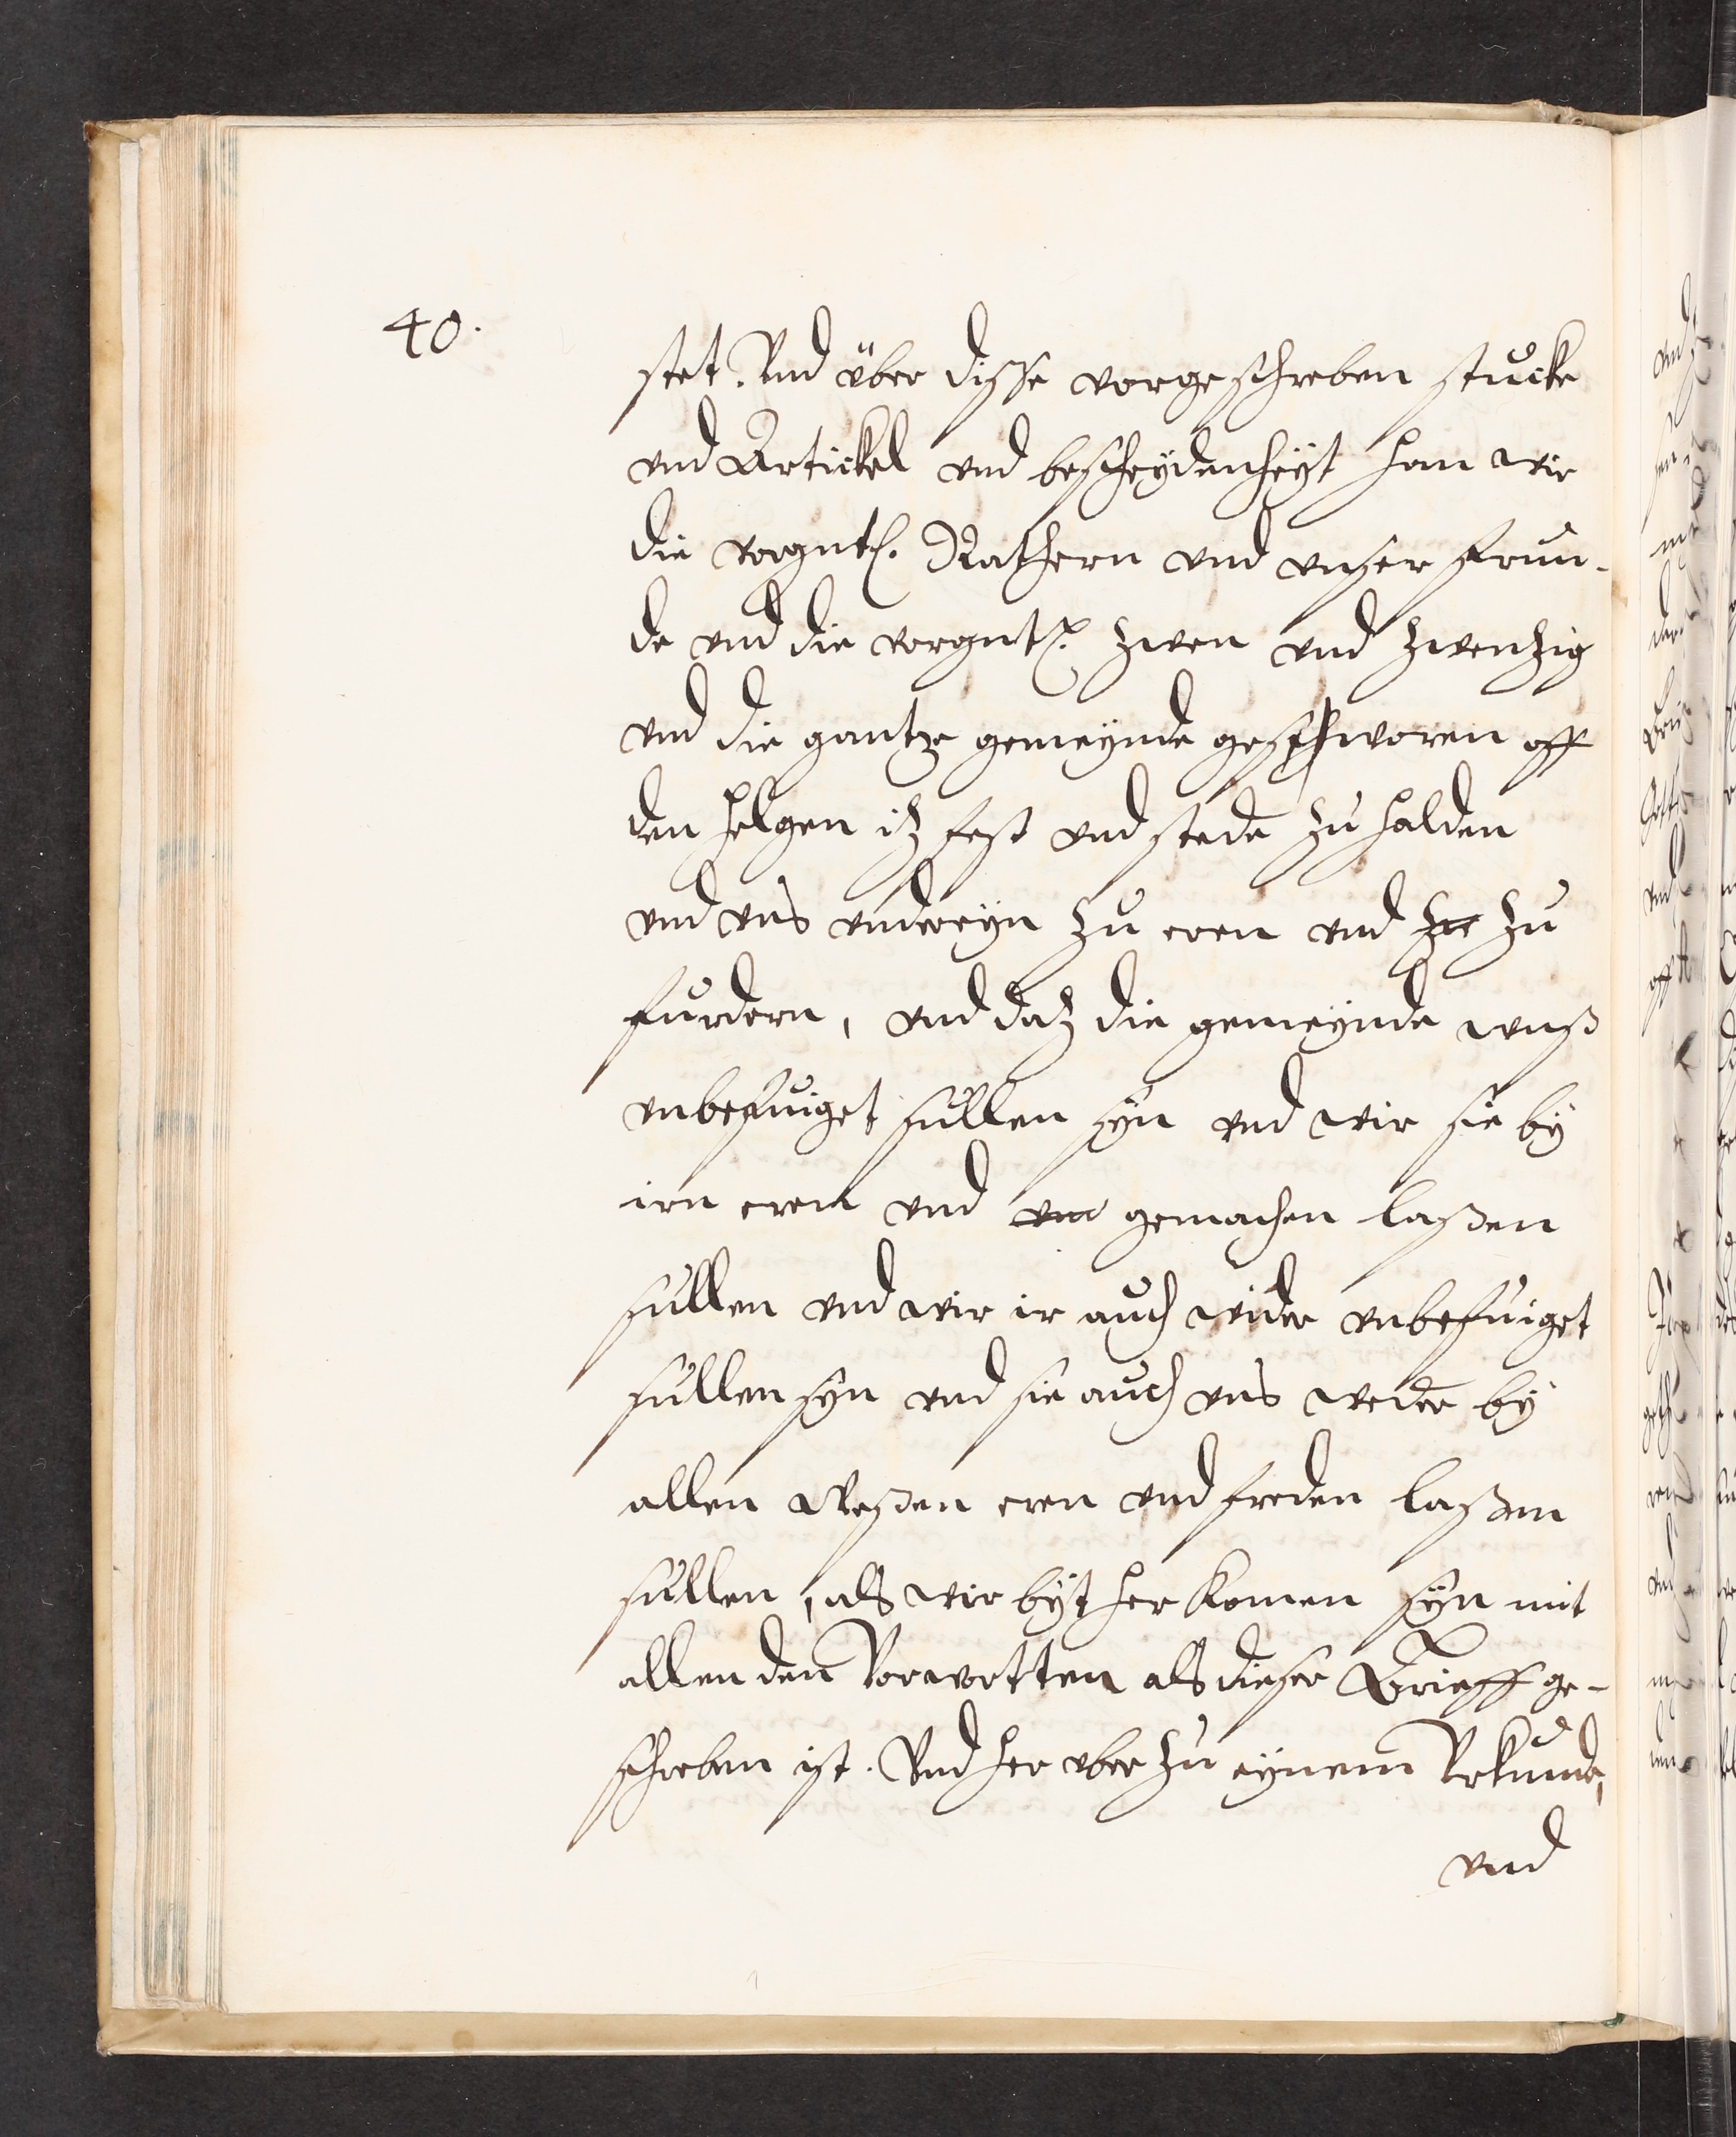 40.
stet. Und über disse vorgeschreben stucke
und Artickel und bescheydenheyt han wir
die vorgnt. Rathern und unser frun-
de und die vorgnt. zwen und zwenzig
und die gantze gemeynde geschworen off
den helgen iz fest und stede zu halden
und uns undereyn zu eren und zu
furdern, und daz die gemeynde unß
unbesuiget sullen syn und wir sie by
irn eren und gemachen laßen
sullen und wir ir auch wider unbesuiget
sullen syn und sie auch uns weder by
allen eren und freden laßen
sullen, als wir byt her komen syn mit
allen den Vorworten als dieser Brieff ge-
schreben ist. Und her uber zu eynem Urkunde,
und